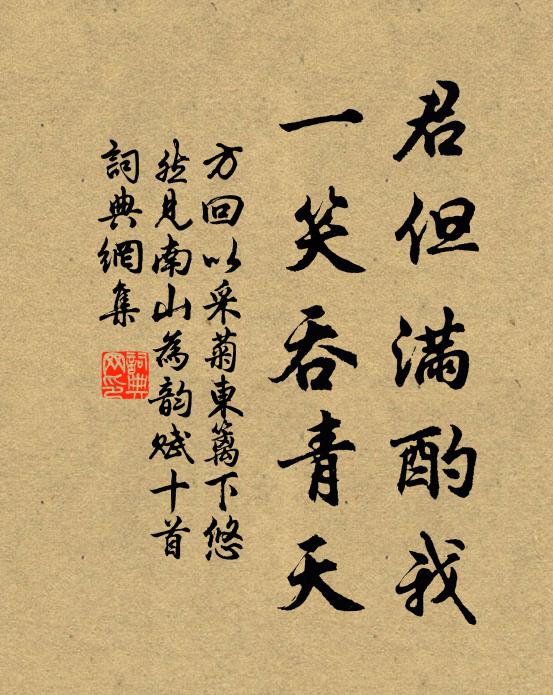 君但滿酌我
一笑吞青天
方回以采菊東籬下悠
然見南山為韵賦十首
詞典網集
詞典
网印